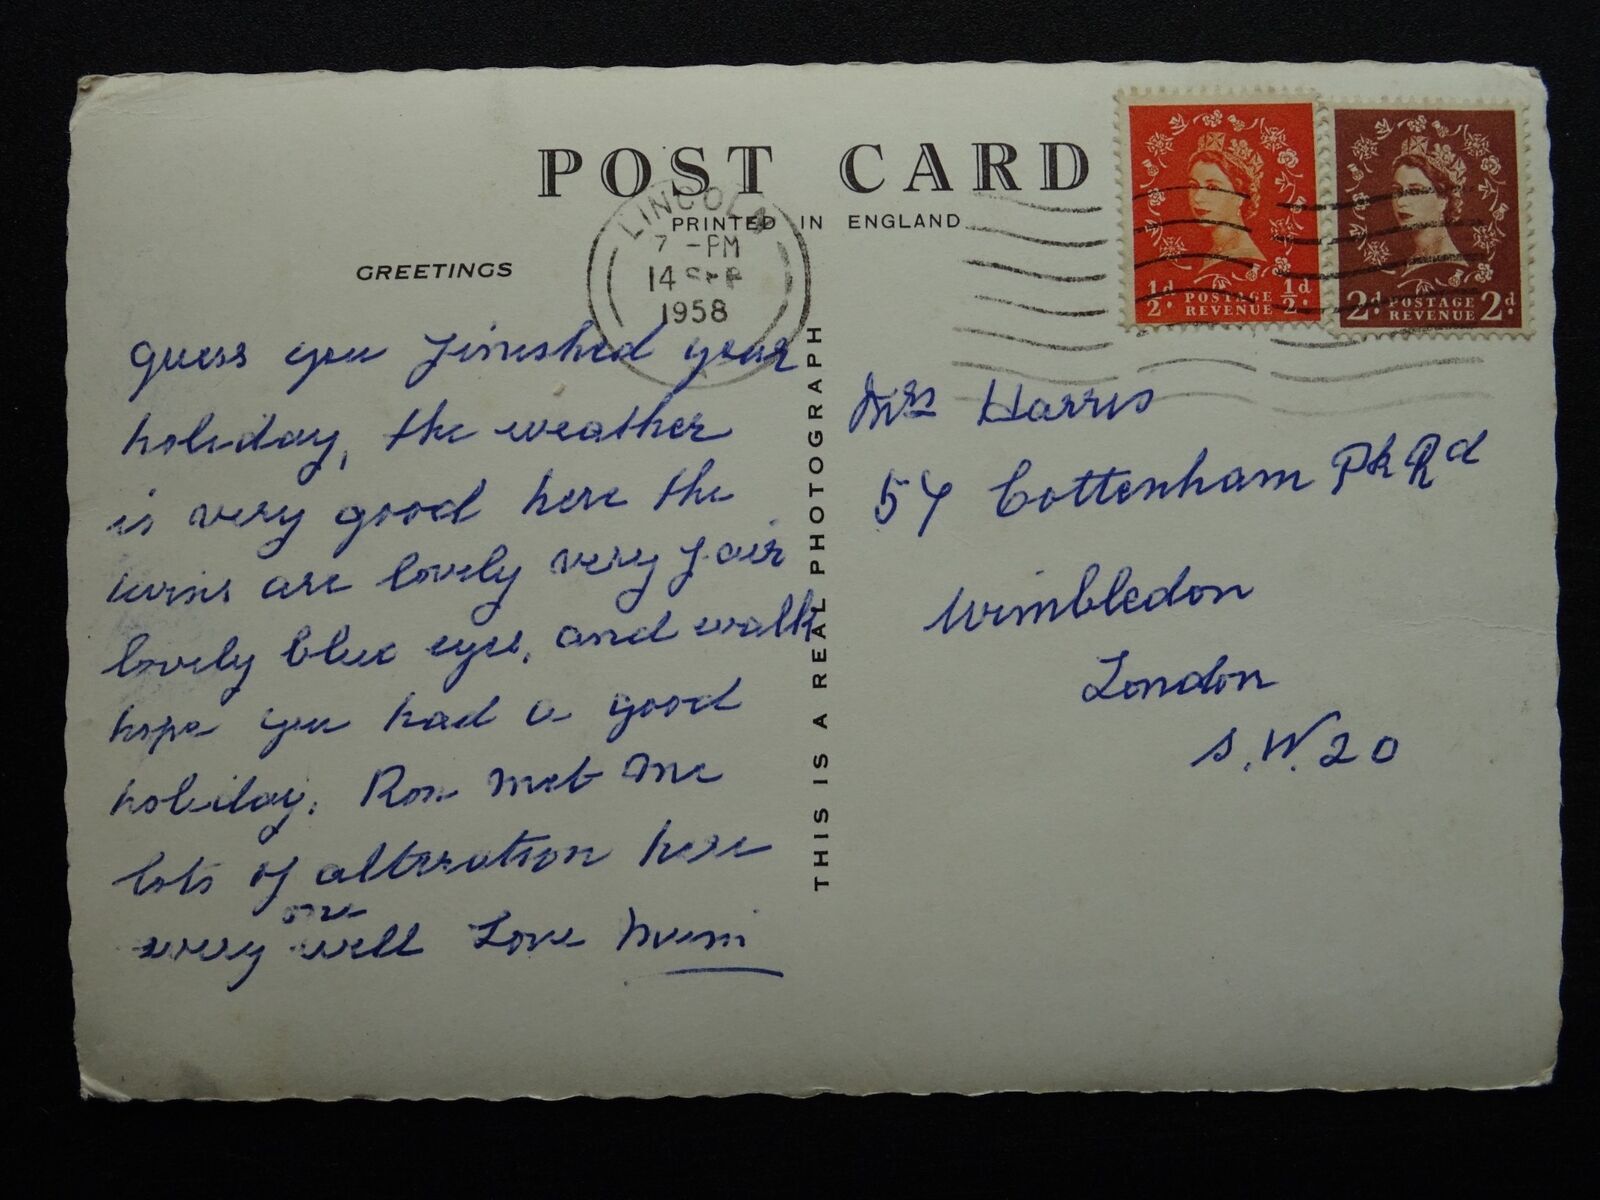 POST CARD
PRINTED IN ENGLAND
GREETINGS
LINCOLN
7 - PM
14 SEP
1958
½d. POSTAGE REVENUE ½d.
2d. POSTAGE REVENUE 2d.
guess you finished your
holiday, the weather
is very good here the
twins are lovely very fair
lovely blue eyes, and walk
hope you had a good
holiday. Ron met me
lots of alteration here
every one well Love
THIS IS A REAL PHOTOGRAPH
Mrs Harris
54 Cottenham Pk Rd
Wimbledon
London
S.W.20